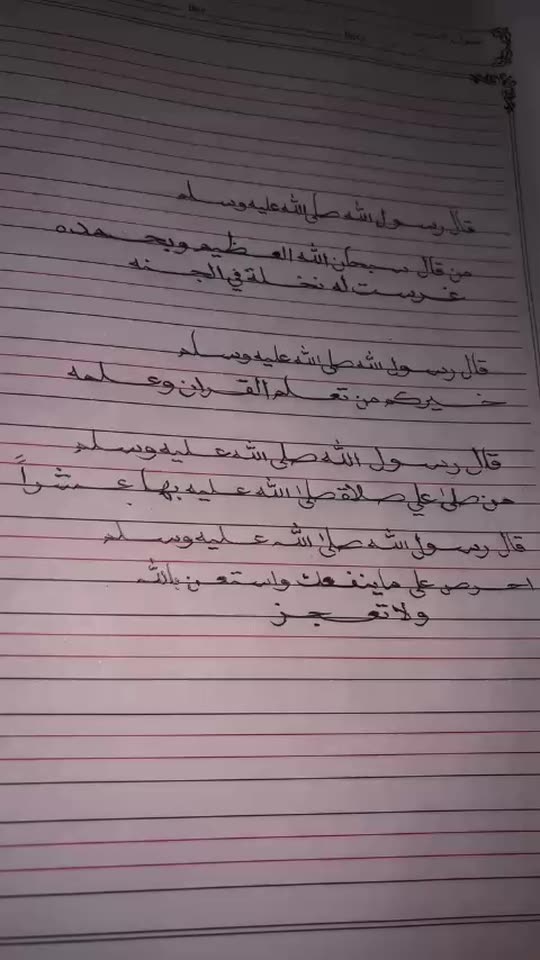 قال رسول الله صلى الله عليه وسلم
من قال سبحن الله العظيم وبحمده
غرست له نخلة في الجنه
قال رسول الله صلى الله عليه وسلم
خيركم من تعلم القران وعلمه
قال رسول الله صلى الله عليه وسلم
من صلى علي صلاة صلى الله عليه بها عشراً
قال رسول الله صلى الله عليه وسلم
احرص على ما ينفعك واستعن بالله
ولا تعجز